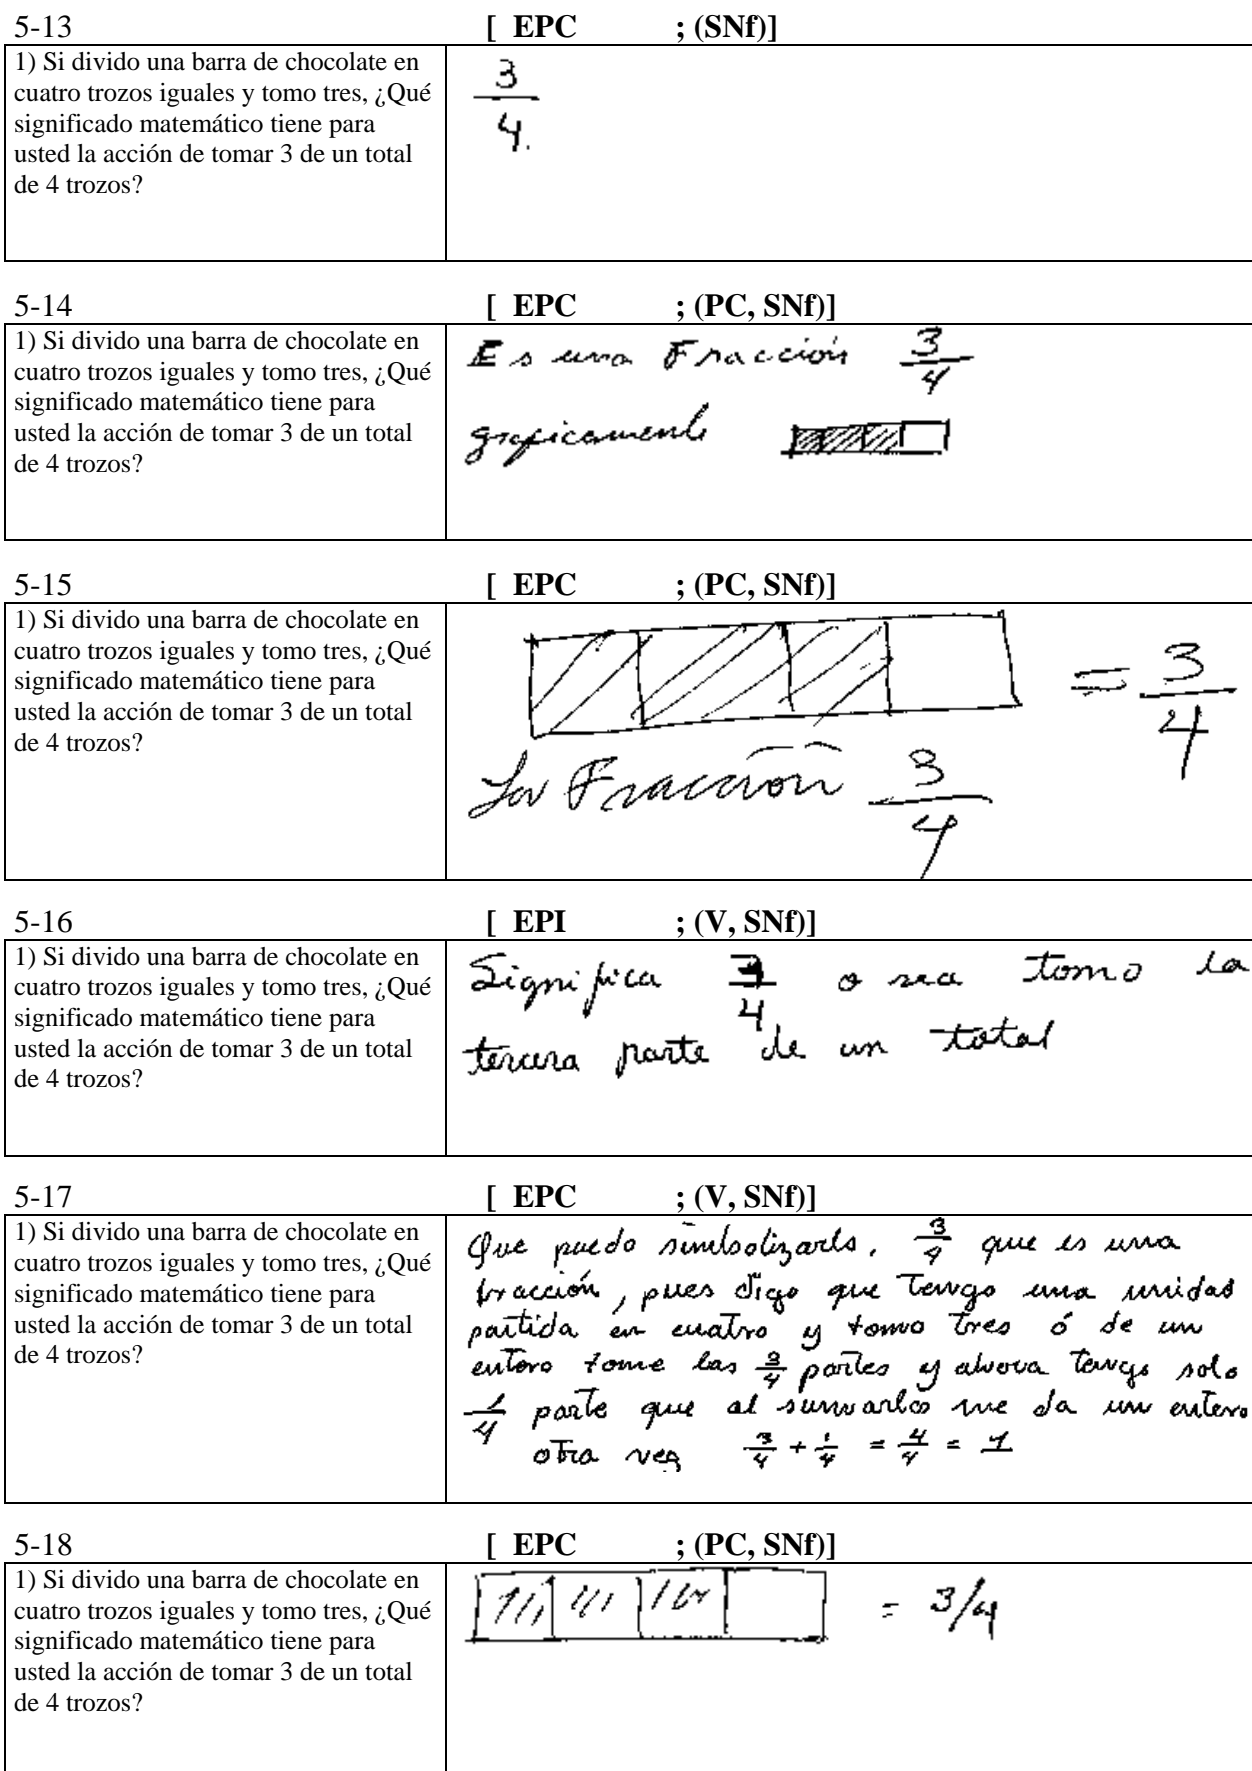 5-13 [ EPC ; (SNf)]
1) Si divido una barra de chocolate en
cuatro trozos iguales y tomo tres, ¿Qué
significado matemático tiene para
usted la acción de tomar 3 de un total
de 4 trozos?
3/4.
5-14 [ EPC ; (PC, SNf)]
1) Si divido una barra de chocolate en
cuatro trozos iguales y tomo tres, ¿Qué
significado matemático tiene para
usted la acción de tomar 3 de un total
de 4 trozos?
Es una Fracción 3/4
graficamente
5-15 [ EPC ; (PC, SNf)]
1) Si divido una barra de chocolate en
cuatro trozos iguales y tomo tres, ¿Qué
significado matemático tiene para
usted la acción de tomar 3 de un total
de 4 trozos?
= 3/4
La Fracción 3/4
5-16 [ EPI ; (V, SNf)]
1) Si divido una barra de chocolate en
cuatro trozos iguales y tomo tres, ¿Qué
significado matemático tiene para
usted la acción de tomar 3 de un total
de 4 trozos?
Significa 3/4 o sea tomo la
tercera parte de un total
5-17 [ EPC ; (V, SNf)]
1) Si divido una barra de chocolate en
cuatro trozos iguales y tomo tres, ¿Qué
significado matemático tiene para
usted la acción de tomar 3 de un total
de 4 trozos?
Que puedo simbolizarlo, 3/4 que es una
fracción, pues digo que tengo una unidad
partida en cuatro y tomo tres ó de un
entero tome las 3/4 partes y ahora tengo solo
1/4 parte que al sumarlos me da un entero
otra vez 3/4 + 1/4 = 4/4 = 1
5-18 [ EPC ; (PC, SNf)]
1) Si divido una barra de chocolate en
cuatro trozos iguales y tomo tres, ¿Qué
significado matemático tiene para
usted la acción de tomar 3 de un total
de 4 trozos?
= 3/4